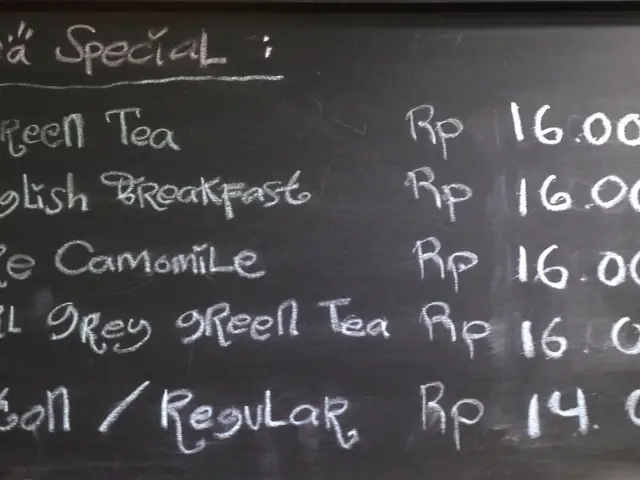 ea Special :
Green Tea Rp 16.00
glish Breakfast Rp 16.00
re Camomile Rp 16.00
rl grey green Tea Rp 16.0
ton / Regular Rp 14.0